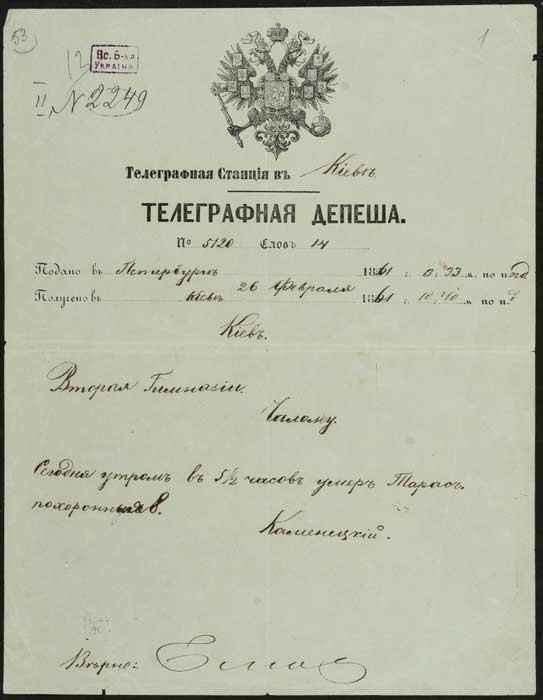 53
1
12
Вс. Б-ка
України
II, N 2249
Телеграфная Станція въ Кіевѣ
ТЕЛЕГРАФНАЯ ДЕПЕША.
№ 5120 Словъ 14
Подано въ Петербургѣ 1861 г. 0. 33 м. по п
Получено въ Кіевѣ 26 Февраля 1861 г. 10. 40 м. по п
Кіевъ.
Вторая Гимназія.
Чалому.
Сегодня утромъ въ 5 1/2 часовъ умеръ Тарасъ.
похороны
Каменецкій.
Вѣрно: